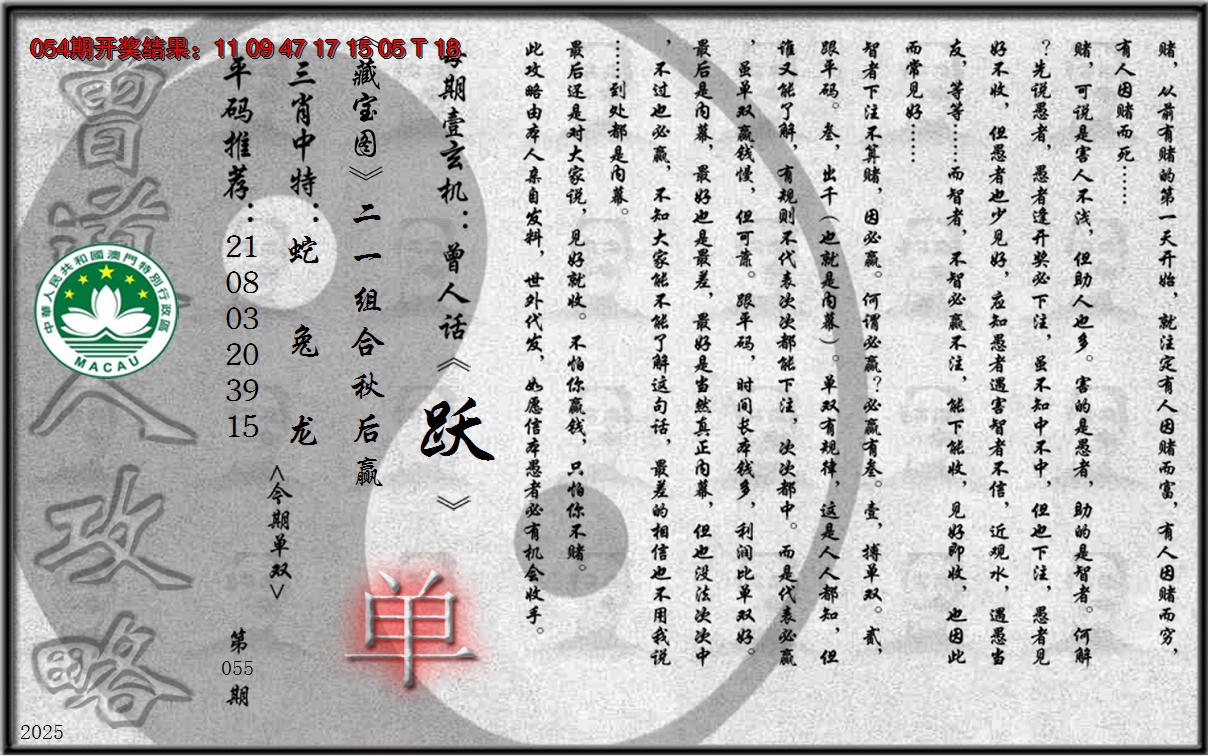 054期开奖结果：11 09 47 17 15 05 T 18
赌，从前有赌的第一天开始，就注定有人因赌而富，有人因赌而穷，
有人因赌而死……
赌，可说是害人不浅，但助人也多。害的是愚者，助的是智者。何解
？先说愚者，愚者逢开奖必下注，虽不知中不中，但也下注，愚者见
好不收，但愚者也少见好，应知愚者遇害智者不信，近观水，遇愚当
友，等等……而智者，不智必赢不注，能下能收，见好即收，也因此
而常见好……
智者下注不算赌，因必赢。何谓必赢？必赢有叁。壹，搏单双。贰，
跟平码。叁，出千（也就是内幕）。单双有规律，这是人人都知，但
谁又能了解，有规则不代表次次都能下注，次次都中。而是代表必赢
，虽单双赢钱慢，但可靠。跟平码，时间长本钱多，利润比单双好。
最后是内幕，最好也是最差，最好是当然真正内幕，但也没法次次中
，不过也必赢，不知大家能不能了解这句话，最差的相信也不用我说
……到处都是内幕。
最后还是对大家说，见好就收。不怕你赢钱，只怕你不赌。
此攻略由本人亲自发料，世外代发，如愿信本愚者必有机会收手。
每期壹玄机：曾人话《跃》
《藏宝图》二一组合秋后赢
单
三肖中特：蛇 兔 龙
<今期单双>
平码推荐：21 08 03 20 39 15
第055期
曾道人攻略
中華人民共和國澳門特別行政區
MACAU
2025